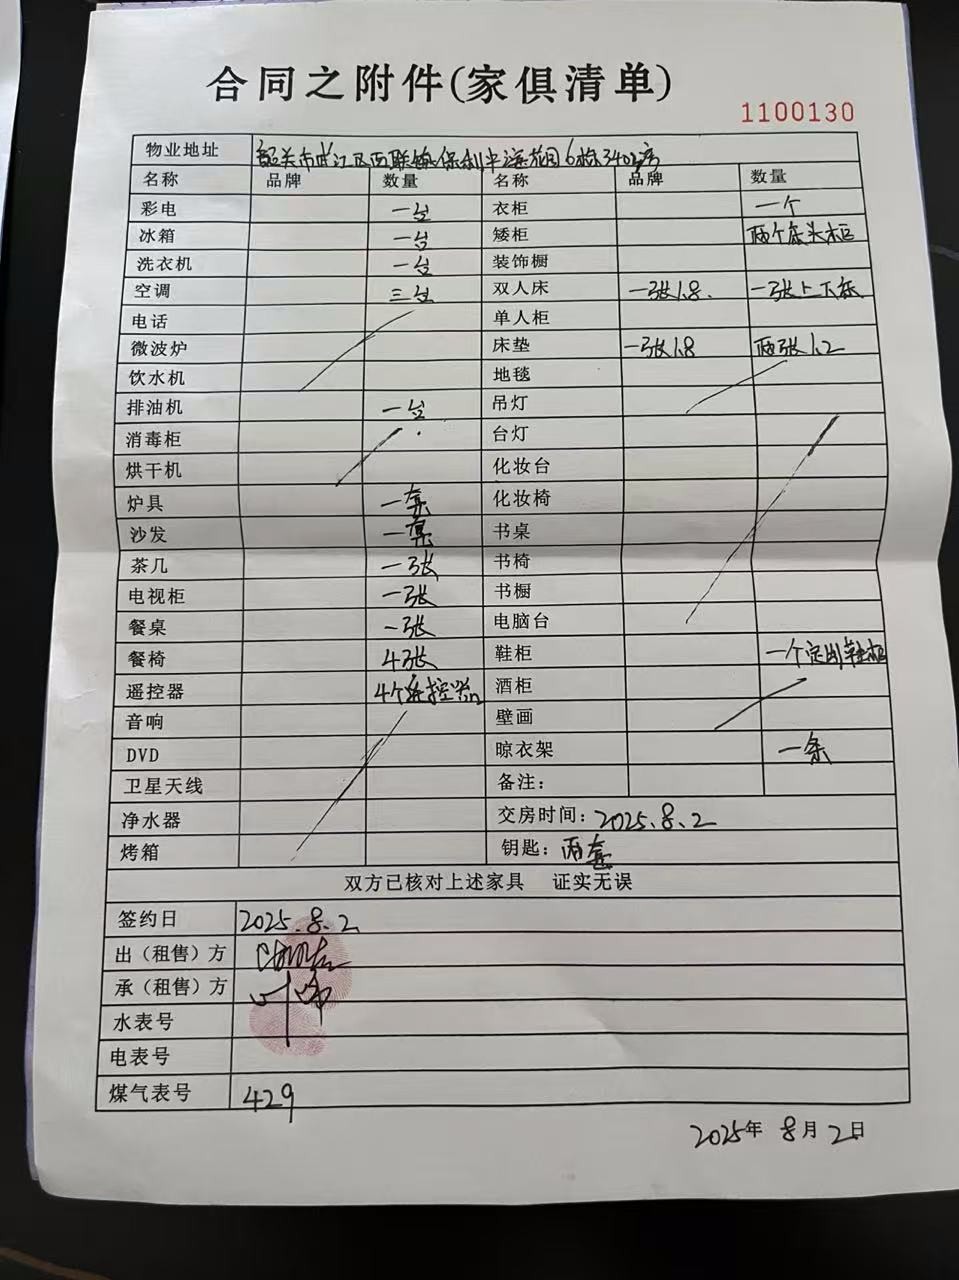 合同之附件(家俱清单)
1100130
物业地址 韶关市武江区西联镇保利中宸花园6栋3402房
名称 品牌 数量 名称 品牌 数量
彩电 一台 衣柜 一个
冰箱 一台 矮柜 两个床头柜
洗衣机 一台 装饰橱
空调 三台 双人床 一张1.8. 一张上下床
电话 单人柜
微波炉 床垫 一张1.8 两张1.2
饮水机 地毯
排油机 一台 吊灯
消毒柜 台灯
烘干机 化妆台
炉具 一套 化妆椅
沙发 一套 书桌
茶几 一张 书椅
电视柜 一张 书橱
餐桌 一张 电脑台
餐椅 4张 鞋柜 一个定制鞋柜
遥控器 4个遥控器 酒柜
音响 壁画
DVD 晾衣架 一条
卫星天线 备注:
净水器 交房时间: 2025.8.2
烤箱 钥匙: 两套
双方已核对上述家具 证实无误
签约日 2025.8.2
出（租售）方
承（租售）方 叶
水表号
电表号
煤气表号 429
2025年 8月 2日